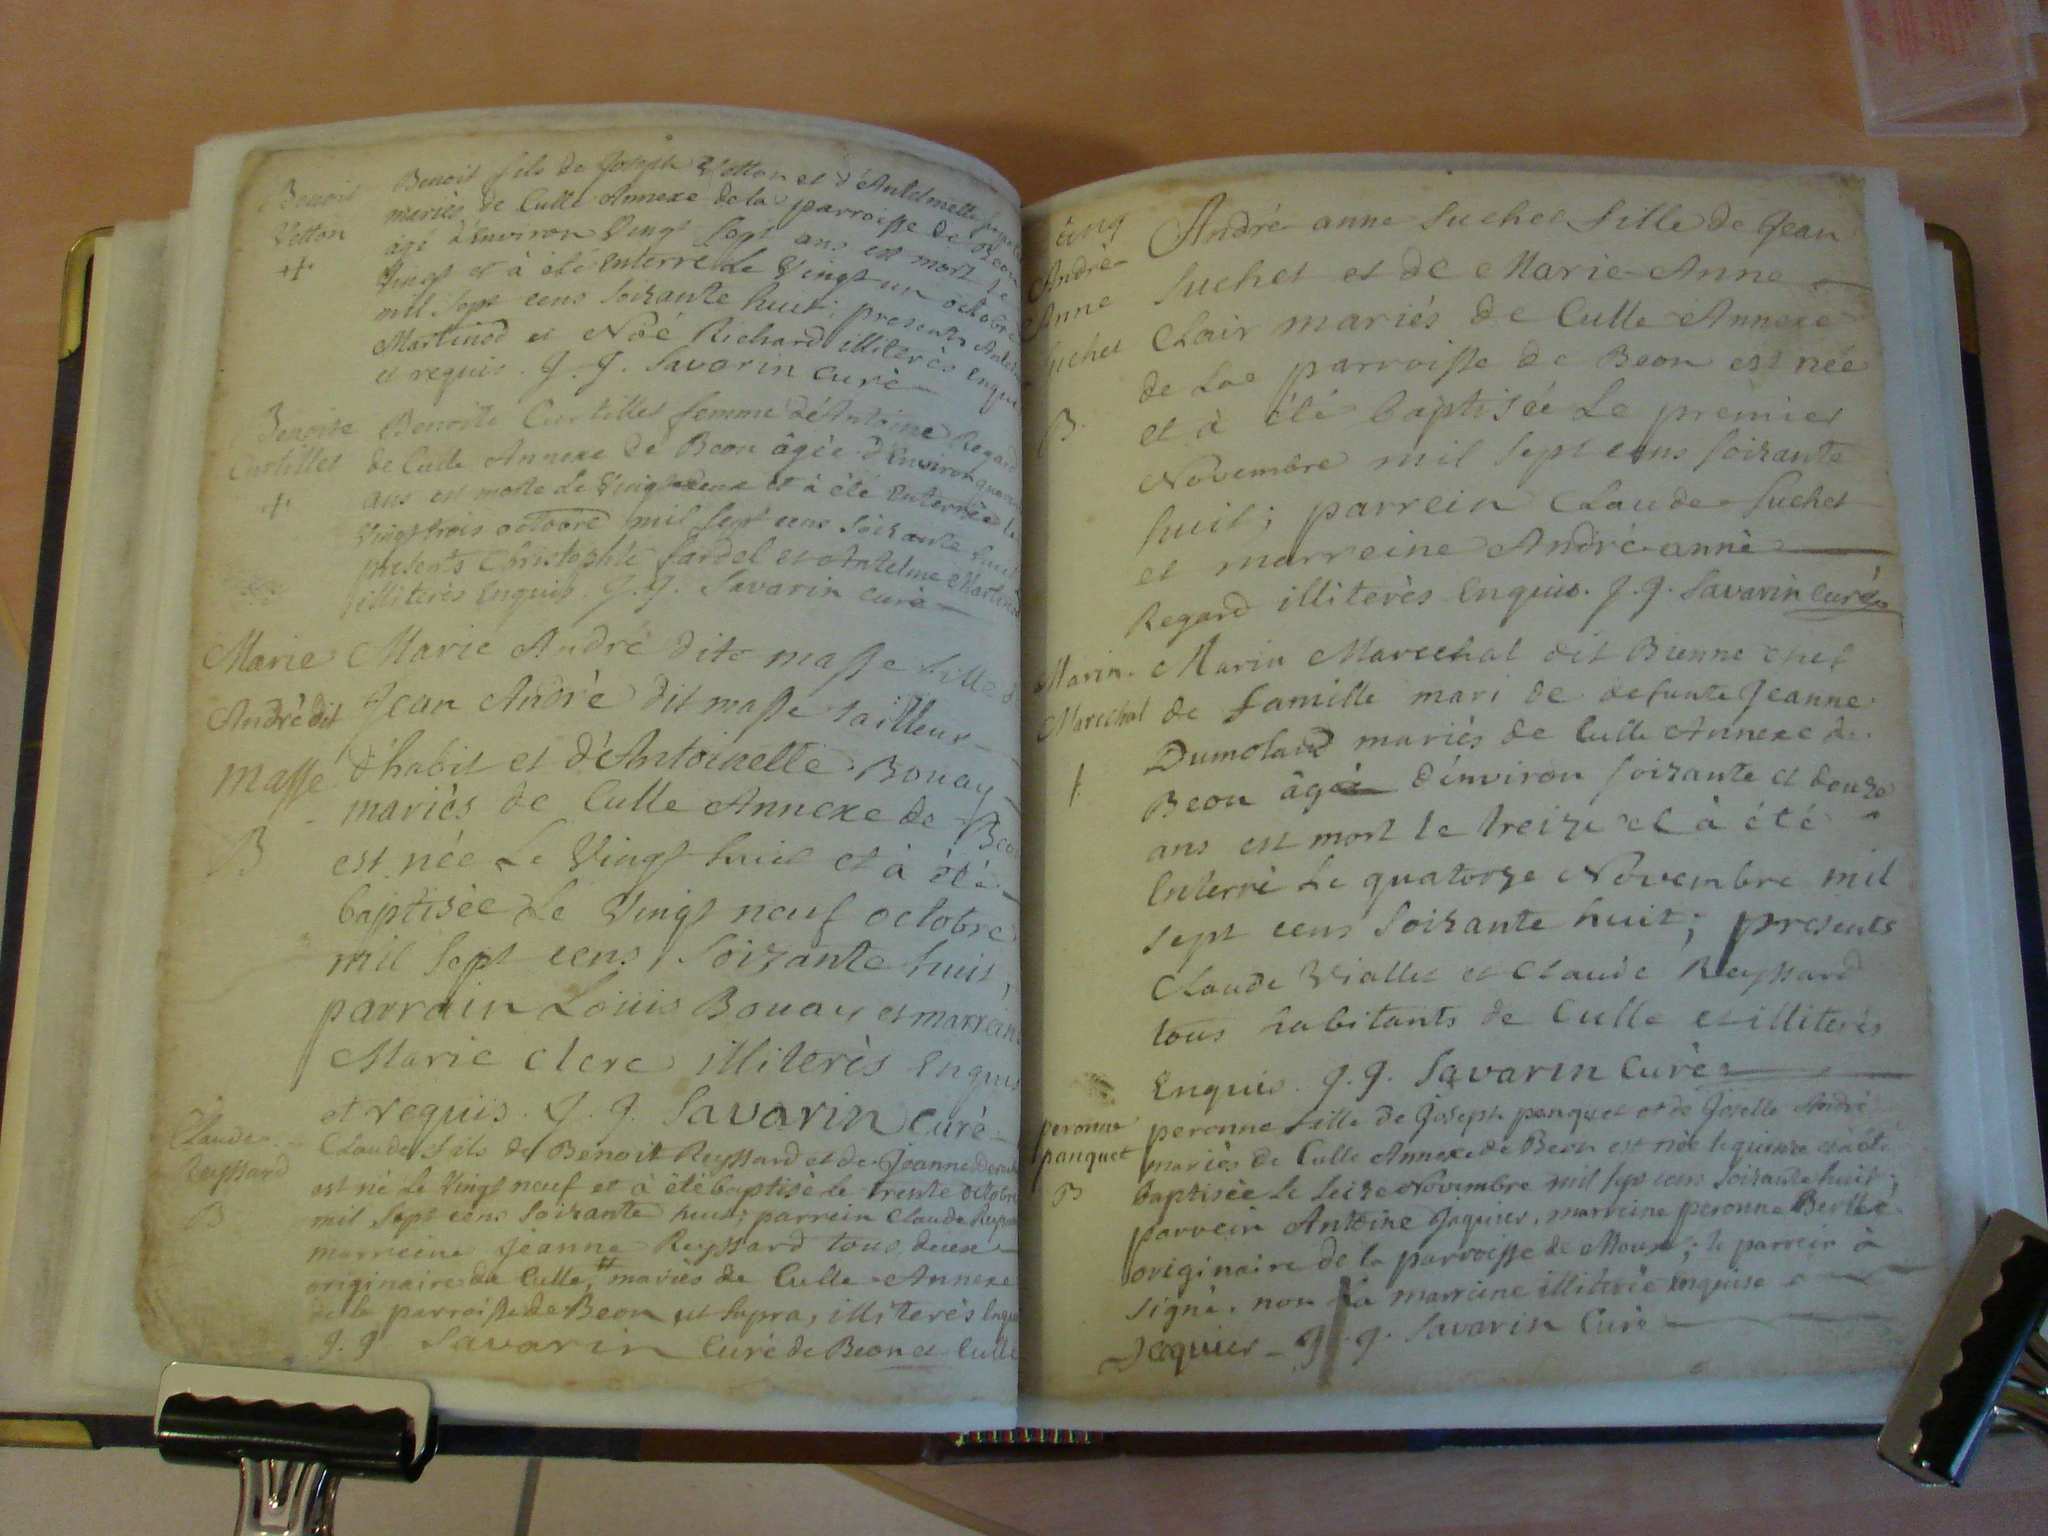 Benoit
Vetton
Benoit fils de Joseph Vetton et d'Antelmette
mariès de Culle Annexe de la parroisse de Beon
âgé d'Environ Vingt sept ans est mort le
Vingt et à été Enterré Le Vingt un octobre
mil sept cens soixante huit; presents
Martinod et Noé Richard illiterès Enquis
et requis. J. J. Savarin curé
Benoite
Curtillet
Benoite Curtillet femme d'Antoine Regard
de Culle Annexe de Beon âgée d'Environ
ans est morte Le Vingt deux et à été Enterrée le
Vingt trois octobre mil sept cens soixante huit
presents Christophle fardel et Antelme Martinod
illiterès Enquis. J. J. Savarin curé
Marie
André dit
Masse
B
Marie André dite masse fille de
Jean Andrè dit masse tailleur
d'habit et d'Antoinette Bouay
mariès de Culle Annexe de Beon
est née Le Vingt huit et à été
baptisée Le Vingt neuf octobre
mil sept cens soixante huit,
parrain Loüis Bouay et marreine
Marie Clerc illiterès Enquis
et requis. J. J. Savarin Curé
Claude
Reyssard
B
Claude fils de Benoit Reyssard et de Jeanne
est né Le Vingt neuf et à été baptisé le trente octobre
mil sept cens soixante huit; parrein Claude Reyssard
marreine Jeanne Reyssard tous deux
originaire de Culle, # mariès de Culle Annexe
de la parroisse de Beon ut supra, illiterès Enquis
J. J. Savarin Curé de Beon et Culle
cinq
Andrè
Anne
Suchet
B.
André anne Suchet fille de Jean
Suchet et de Marie Anne
Clair mariés de Culle Annexe
de La parroisse de Beon est née
et à été baptisée Le premier
Novembre mil sept cens soixante
huit; parrein Claude Suchet
et marreine André anne
Regard illiterès Enquis. J. J. Savarin Curé
Marin
Marechal
Marin Marechal dit Bienne chef
de famille mari de defunte Jeanne
Dumolard mariés de Culle Annexe de
Beon âgé d'environ soixante et douze
ans est mort le treize et à été
Enterré Le quatorze Novembre mil
sept cens soixante huit; presents
Claude Viallet et Claude Reyssard
tous habitants de Culle et illiterès
Enquis. J. J. Savarin Curé
peronne
panquet
B
peronne fille de Joseph panquet et de Josette Andrè
mariès de Culle Annexe de Beon est née le quinze et à été
baptisée le seize Novembre mil sept cens soixante huit;
parrein Antoine Jaquier, marreine peronne Berthe
originaire de la parroisse de ; le parrein à
signé, non la marreine illiterée Enquise
Jequier J. J. Savarin Curé